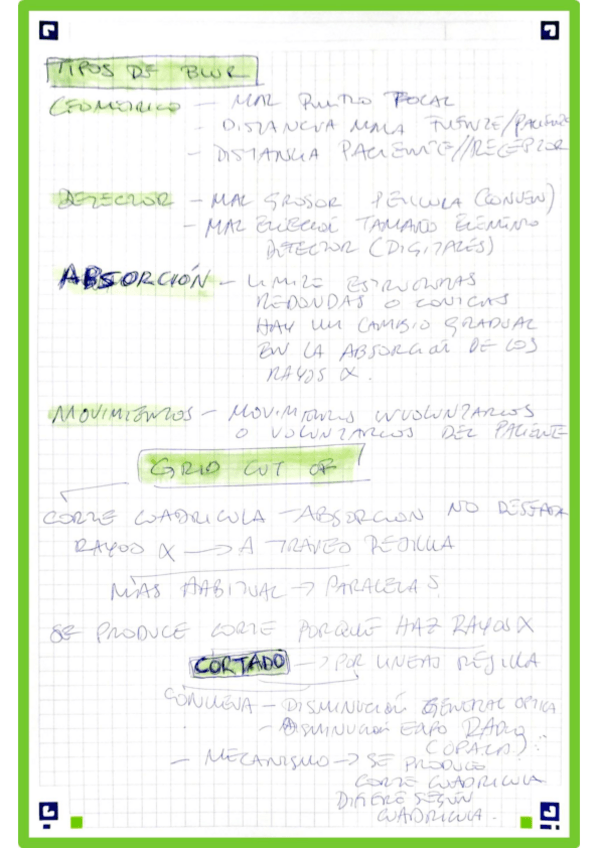 TIPOS DE BLUR
GEOMETRICO - MAL PUNTO FOCAL
- DISTANCIA MALA FUENTE/PACIENTE
- DISTANCIA PACIENTE//RECEPTOR
DETECTOR - MAL GROSOR PELICULA (CONVEN)
- MAL ELECCIÓN TAMAÑO ELEMENTO
DETECTOR (DIGITALES)
ABSORCIÓN - LIMITE ESTRUCTURAS
REDONDAS O CONICAS
HAY UN CAMBIO GRADUAL
EN LA ABSORCIÓN DE LOS
RAYOS X.
MOVIMIENTOS - MOVIMIENTOS INVOLUNTARIOS
O VOLUNTARIOS DEL PACIENTE
GRID CUT OF
CORTE CUADRICULA - ABSORCION NO DESEADA
RAYOS X → A TRAVES REJILLA
MÁS HABITUAL → PARALELAS
SE PRODUCE CORTE PORQUE HAZ RAYOS X
CORTADO → POR LINEAS REJILLA
CONLLEVA - DISMINUCIÓN GENERAL OPTICA
- DISMINUCIÓN RADIO
COPACA)
- MECANISMO → SE PRODUCE
CORTE CUADRICULA
DIFIERE SEGÚN
CUADRICULA.